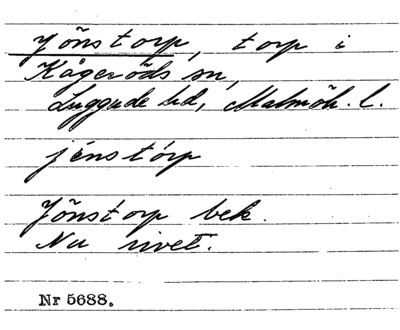 Jönstorp, torp i
Kågeröds sn,
Luggude hd, Malmöh. l.
jénstórp
Jönstorp bek.
Nu rivet.
Nr 5688.